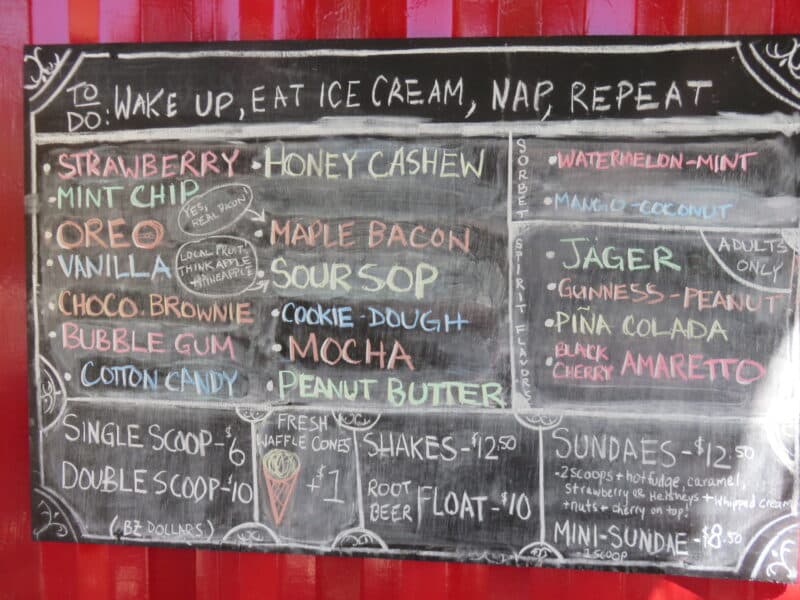 TO DO: WAKE UP, EAT ICE CREAM, NAP, REPEAT
• STRAWBERRY
• MINT CHIP
• OREO
• VANILLA
• CHOCO. BROWNIE
• BUBBLE GUM
• COTTON CANDY
• HONEY CASHEW
YES,
REAL BACON!
• MAPLE BACON
LOCAL FRUIT,
THINK APPLE
+ PINEAPPLE
• SOURSOP
• COOKIE-DOUGH
• MOCHA
• PEANUT BUTTER
SORBET
• WATERMELON-MINT
• MANGO-COCONUT
SPIRIT FLAVORS
ADULTS
ONLY
• JÄGER
• GUINNESS-PEANUT
• PIÑA COLADA
• BLACK CHERRY AMARETTO
SINGLE SCOOP-$6
DOUBLE SCOOP-$10
(BZ DOLLARS)
FRESH
WAFFLE CONES
+$1
SHAKES-$12.50
ROOT BEER FLOAT-$10
SUNDAES-$12.50
-2 scoops + hot fudge, caramel,
strawberry or Hersheys + whipped cream
+nuts + cherry on top!
MINI-SUNDAE-$8.50
-1 SCOOP